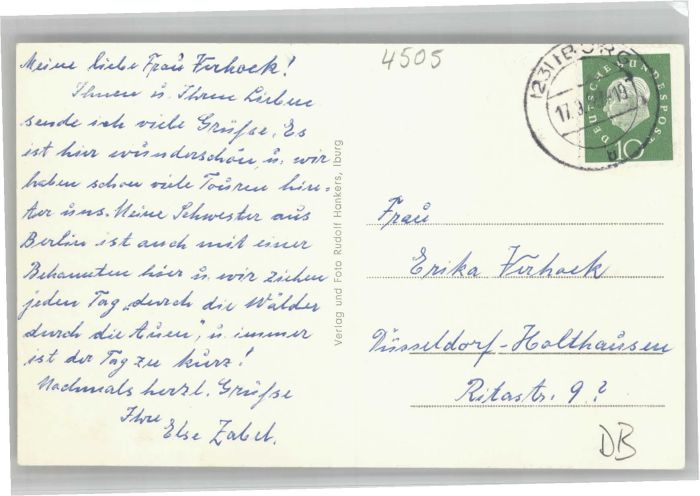 Meine liebe Frau Verhock!
Ihnen u. Ihren Lieben
sende ich viele Grüße. Es
ist hier wunderschön u. wir
haben schon viele Touren hin-
ter uns. Meine Schwester aus
Berlin ist auch mit einer
Bekannten hier u. wir ziehen
jeden Tag „durch die Wälder
durch die Auen", u. immer
ist der Tag zu kurz!
Nochmals herzl. Grüße
Ihre
Else Zabel.
Verlag und Foto Rudolf Hankers, Iburg
4505
(23) IBURG
17.
DEUTSCHE BUNDESPOST
10
Frau
Erika Verhock
Düsseldorf-Holthausen
Ritastr. 9?
DB